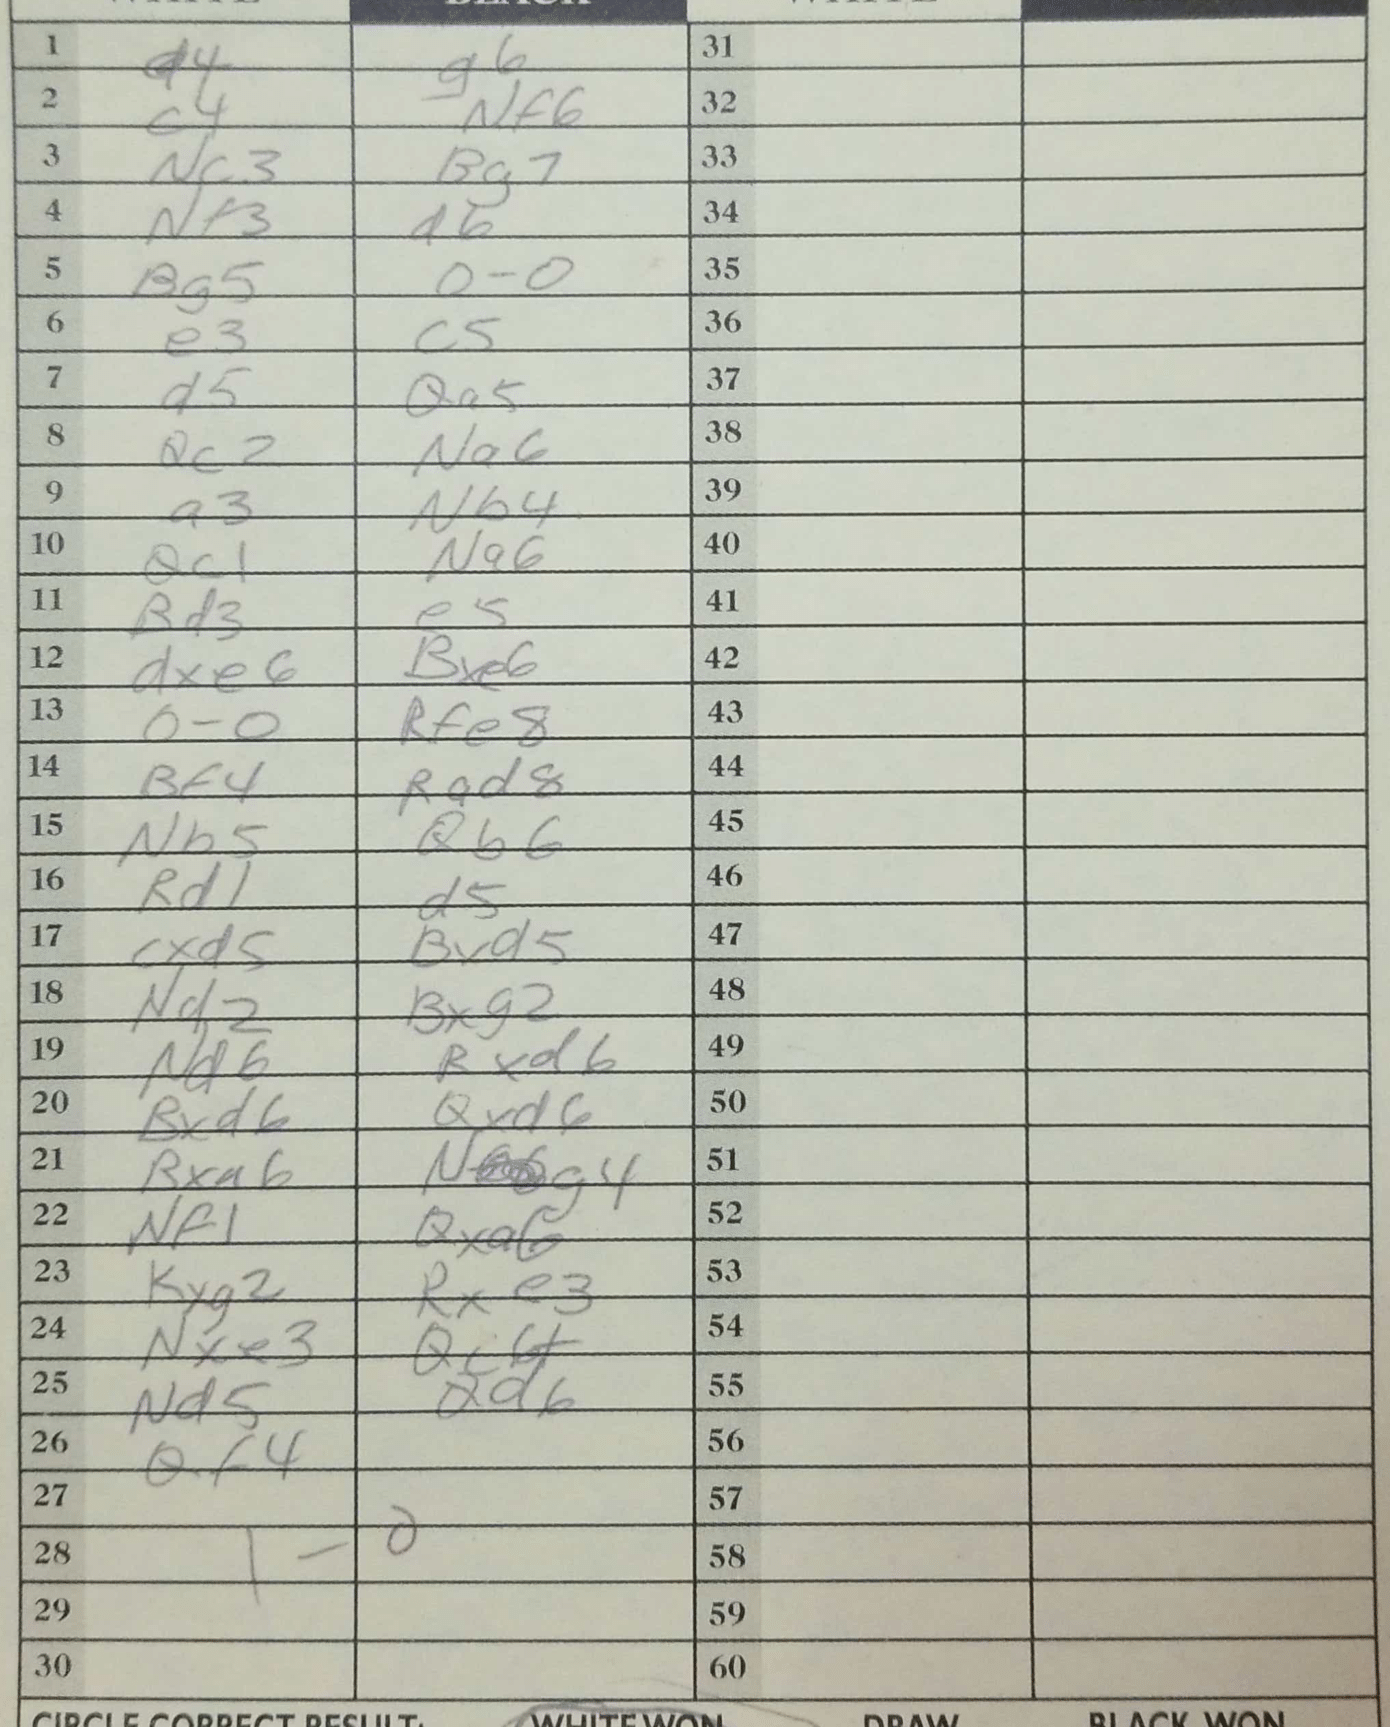 WHITE BLACK WHITE
1 d4 g6 31
2 c4 Nf6 32
3 Nc3 Bg7 33
4 Nf3 d6 34
5 Bg5 0-0 35
6 e3 c5 36
7 d5 Qa5 37
8 Qc2 Na6 38
9 a3 Nb4 39
10 Qc1 Na6 40
11 Bd3 e5 41
12 dxe6 Bxe6 42
13 0-0 Rfe8 43
14 Bf4 Rad8 44
15 Nb5 Qb6 45
16 Rd1 d5 46
17 cxd5 Bxd5 47
18 Nd2 Bxg2 48
19 Nd6 Rxd6 49
20 Bxd6 Qxd6 50
21 Bxa6 Ng4 51
22 Nf1 Qxa6 52
23 Kxg2 Rxe3 53
24 Nxe3 Qc6+ 54
25 Nd5 Qd6 55
26 Qf4 56
27 57
28 1-0 58
29 59
30 60
CIRCLE CORRECT RESULT: WHITE WON DRAW BLACK WON